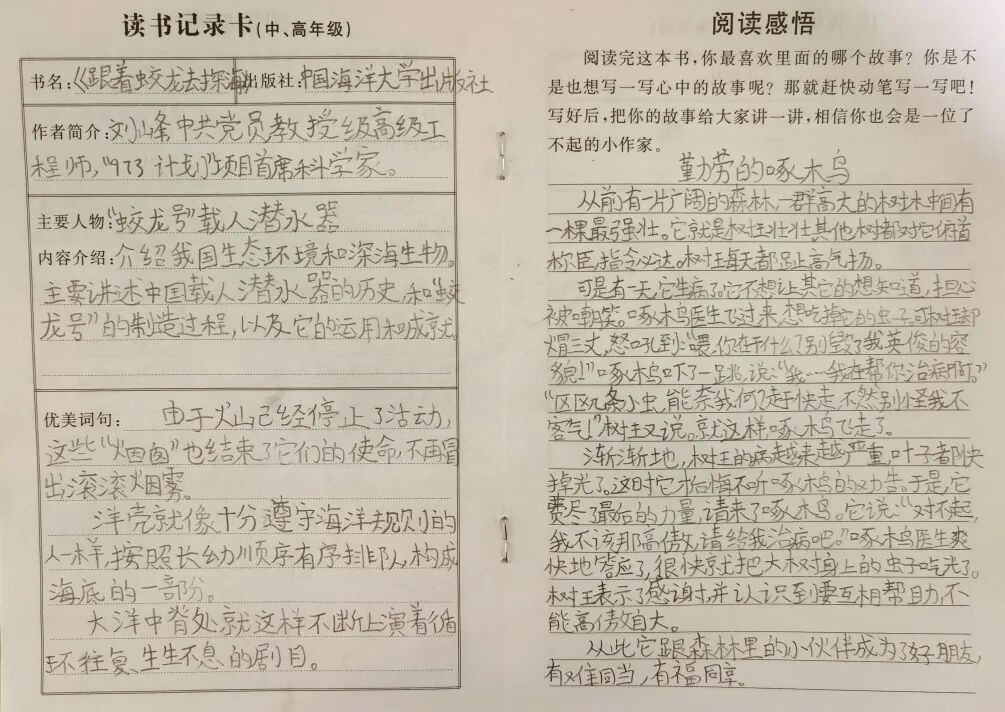 读书记录卡(中、高年级)
书名:《跟着蛟龙去探海》出版社:中国海洋大学出版社
作者简介:刘峰中共党员教授级高级工
程师,“973计划”项目首席科学家。
主要人物:“蛟龙号”载人潜水器
内容介绍:介绍我国生态环境和深海生物。
主要讲述中国载人潜水器的历史,和“蛟
龙号”的制造过程,以及它的运用和成就。
优美词句: 由于火山已经停止了活动,
这些“烟囱”也结束了它们的使命,不再冒
出滚滚烟雾。
洋壳就像十分遵守海洋规则的
人一样,按照长幼顺序有序排队,构成
海底的一部分。
大洋中脊处就这样不断上演着循
环往复、生生不息的剧目。
阅读感悟
阅读完这本书,你最喜欢里面的哪个故事?你是不
是也想写一写心中的故事呢?那就赶快动笔写一写吧!
写好后,把你的故事给大家讲一讲,相信你也会是一位了
不起的小作家。
勤劳的啄木鸟
从前有一片广阔的森林,一群高大的树木中间有
一棵最强壮。它就是树王壮壮其他树都对它俯首
称臣,指令必达。树王每天都趾高气扬。
可是有一天,它生病了。它不想让其它的想知道,担心
被嘲笑。啄木鸟医生飞过来,想吃掉它的虫子。可树王却
火冒三丈,怒吼到:“喂,你在干什么?别毁了我英俊的容
貌!”啄木鸟吓了一跳,说:“我……我在帮你治病啊。”
“区区几条小虫,能奈我何?赶快走,不然别怪我不
客气!”树王又说。就这样,啄木鸟飞走了。
渐渐地,树王的病越来越严重,叶子都快
掉光了。这时它才后悔不听啄木鸟的劝告。于是,它
费尽了最后的力量,请来了啄木鸟。它说:“对不起,
我不该那高傲,请给我治病吧。”啄木鸟医生爽
快地答应了,很快就把大树身上的虫子吃光了。
树王表示了感谢,并认识到要互相帮助,不
能高傲自大。
从此它跟森林里的小伙伴成为了好朋友,
有难同当,有福同享。